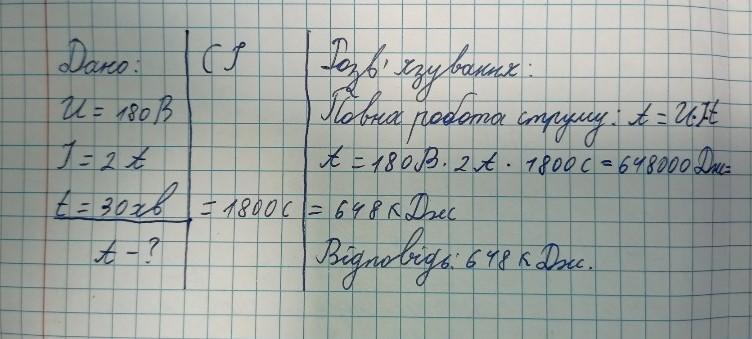 Дано:
U = 180 В
I = 2 А
t = 30 хв
A - ?
СІ
= 1800 с
Розв'язування:
Повна робота струму: A = U·I·t
A = 180 В · 2 А · 1800 с = 648000 Дж =
= 648 к Дж
Відповідь: 648 к Дж.